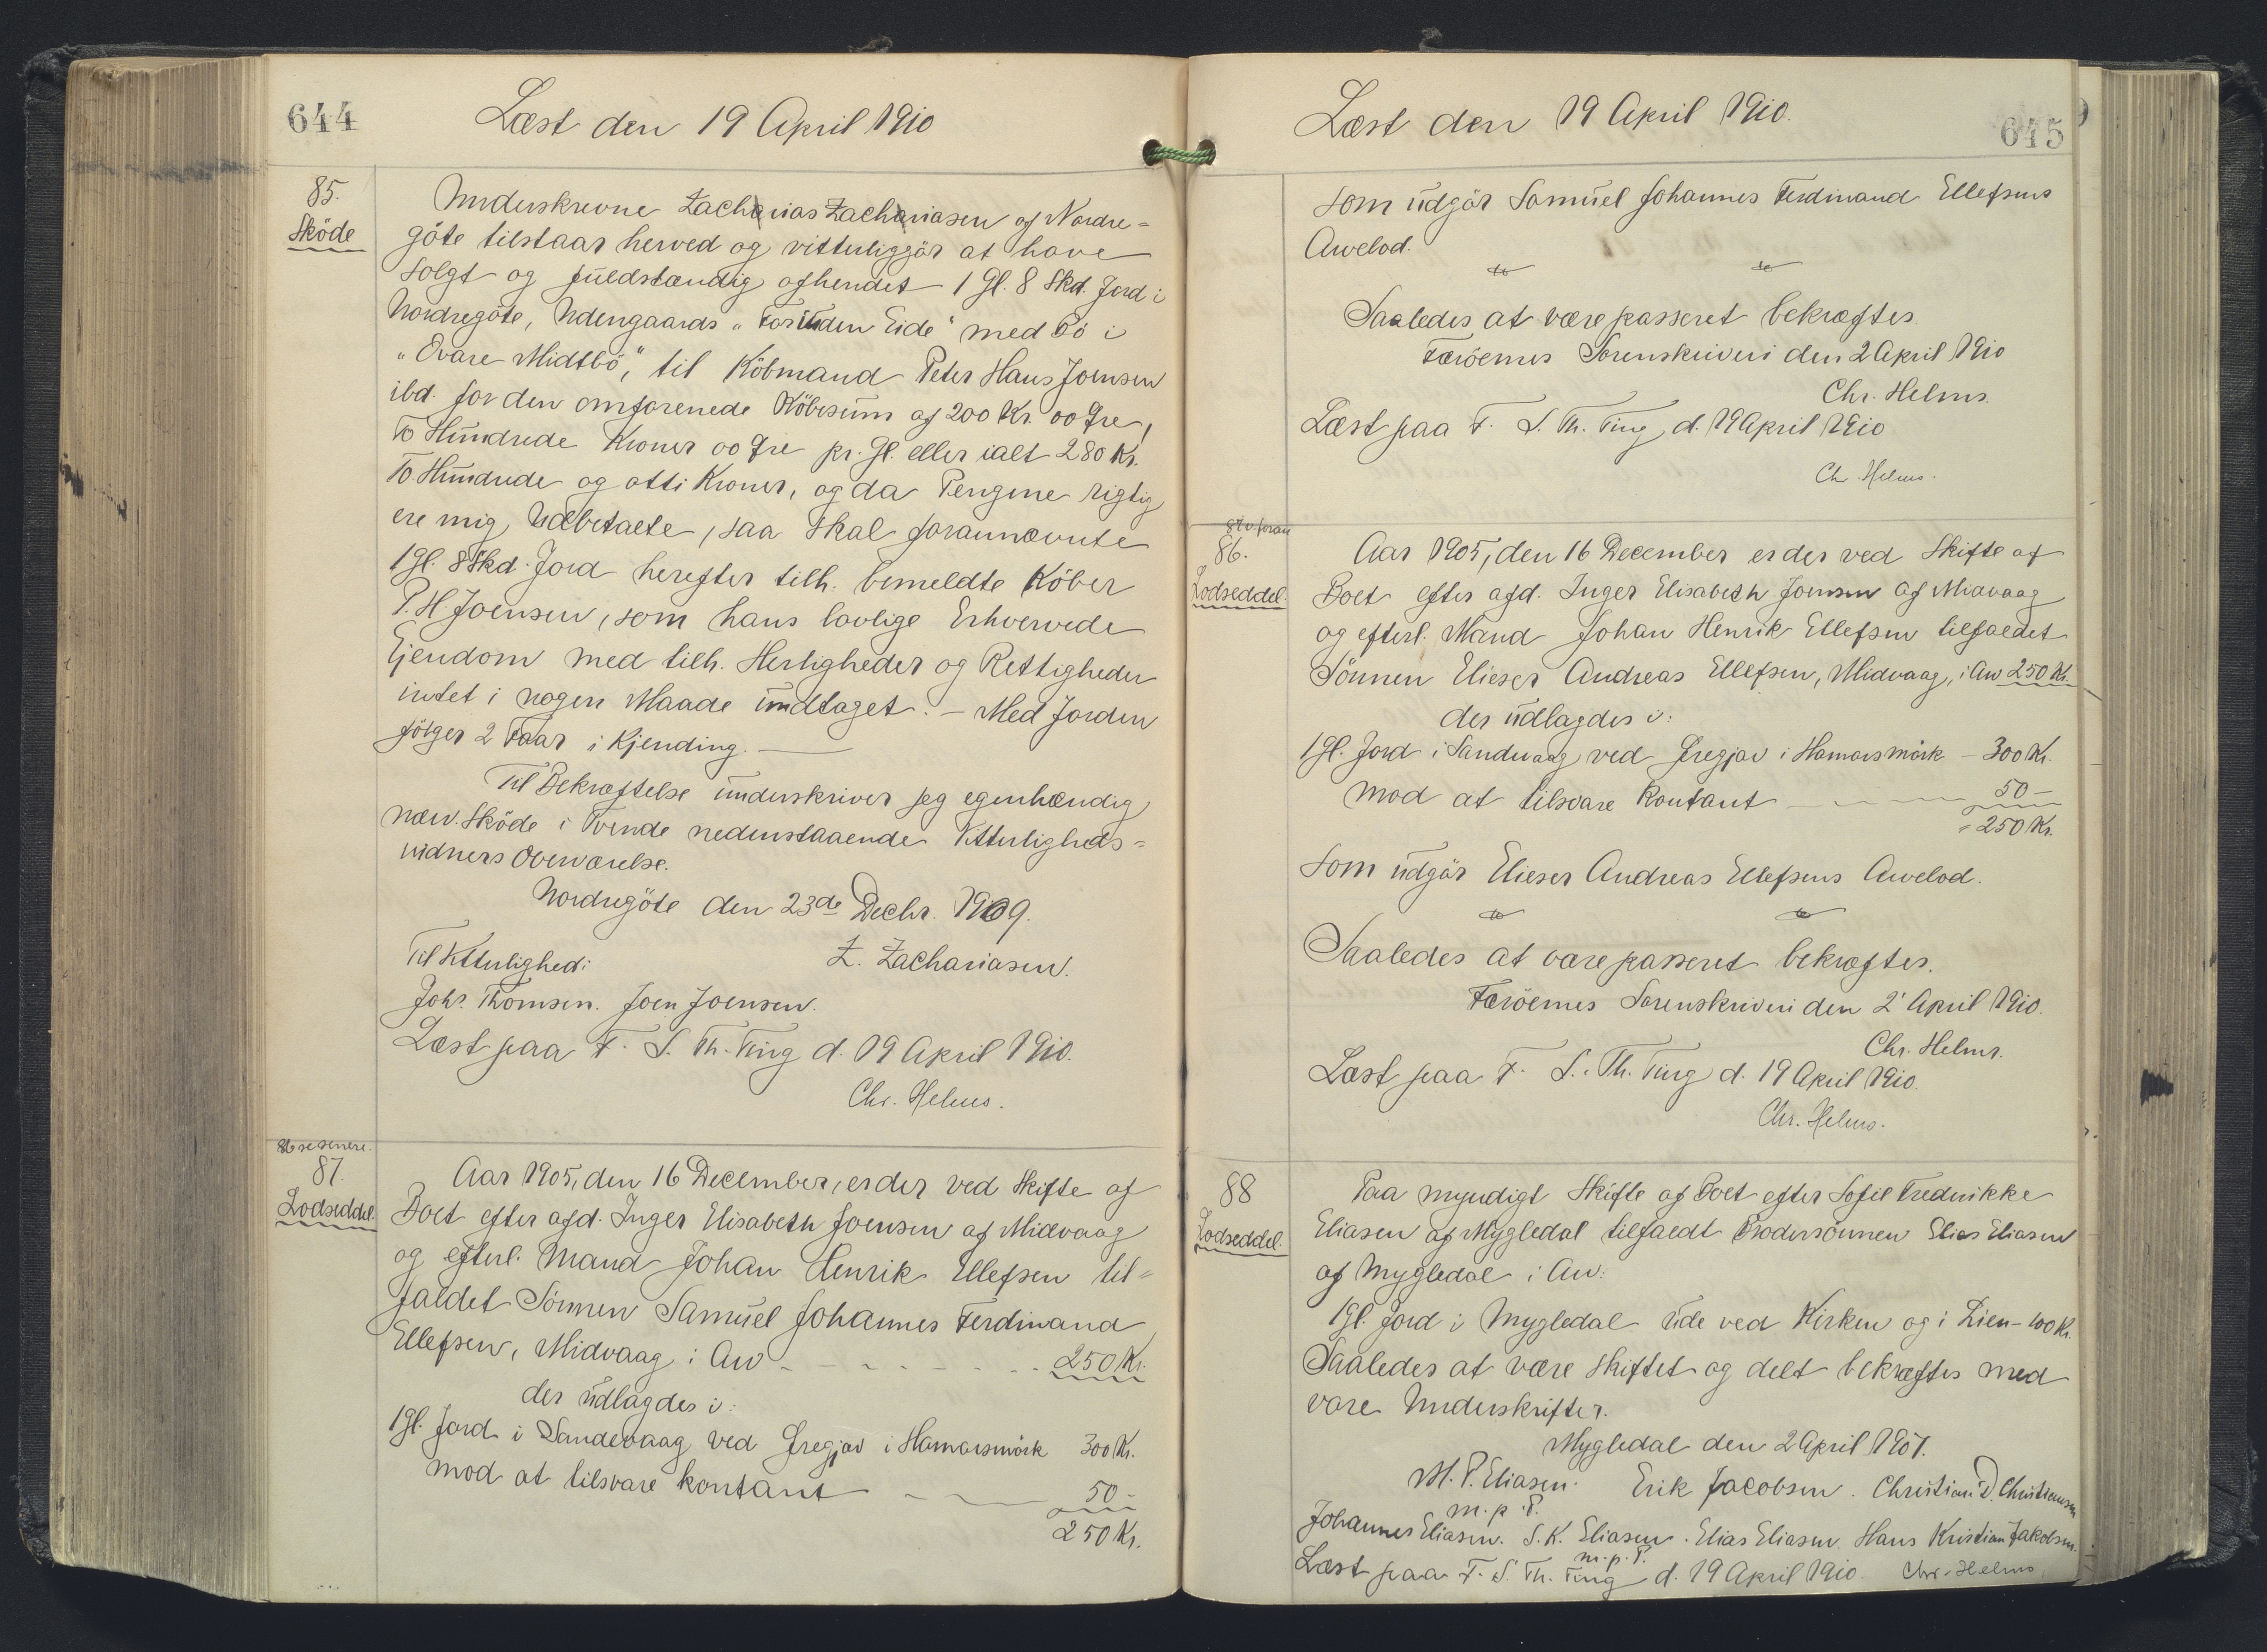 644
Læst den 19 April 1910
85.
Sköde
Underskrevne Zacharias Zachariasen af Nordre=
göte tilstaar herved og vitterliggjör at have
solgt og fuldstændig afhendet 1 Gl. 8 Skd. Jord i
Nordregöte, Udengaards "Foruden Eide" med Bö i
"Ovare Midtbö", til Köbmand Peter Hans Joensen
ibd. for den omforenede Köbesum af 200 Kr. 00 Öre,
To Hundrede Kroner 00 Öre pr. Gl. eller ialt 280 Kr.
To Hundrede og otti Kroner, og da Pengene rigtig
ere mig Udbetalte, saa skal forannævnte
1 Gl. 8 Skd. Jord herefter tilh. bemeldte Köber
P. H. Joensen, som hans lovlige Erhvervede
Ejendom med tilh. Herligheder og Rettigheder
intet i nogen Maade undtaget. – Med Jorden
fölger 2 Faar i Kjending.
Til Bekræftelse underskriver jeg egenhændig
nærv. Sköde i Tvende nedenstaaende Vitterligheds=
vidners Overværelse.
Nordregöte den 23de Decbr. 1909.
Til Vitterlighed: Z. Zachariasen.
Johs. Thomsen. Joen Joensen.
Læst paa F. S. Th. Ting d. 19 April 1910.
Chr. Helms.
86 se senere.
87.
Lodseddel.
Aar 1905, den 16 December, er der ved Skifte af
Boet efter afd. Inger Elisabeth Joensen af Midvaag
og efterl. Mand Johan Henrik Ellefsen til=
faldet Sönnen Samuel Johannes Ferdinand
Ellefsen, Midvaag i Arv 250 Kr.
der udlagdes i:
1 Gl. Jord i Sandevaag ved Gregjav i Hamarsmörk 300 Kr.
mod at tilsvare kontant 50 –
250 Kr.
645
Læst den 19 April 1910.
som udgör Samuel Johannes Ferdinand Ellefsens
Arvelod.
Saaledes at være passeret bekræftes
Færöernes Sorenskriveri den 2 April 1910
Chr. Helms.
Læst paa F. S. Th. Ting d. 19 April 1910
Chr. Helms.
87 v. foran
86.
Lodseddel.
Aar 1905, den 16 December er der ved Skifte af
Boet efter afd. Inger Elisabeth Joensen af Midvaag
og efterl. Mand Johan Henrik Ellefsen tilfaldet
Sönnen Elieser Andreas Ellefsen, Midvaag, i Arv 250 Kr.
der udlagdes i:
1 Gl. Jord i Sandevaag ved Gregjav i Hamarsmörk – 300 Kr.
mod at tilsvare kontant 50 –
= 250 Kr.
som udgör Elieser Andreas Ellefsens Arvelod.
Saaledes at være passeret bekræftes.
Færöernes Sorenskriveri den 2' April 1910.
Chr. Helms.
Læst paa F. S. Th. Ting d. 19 April 1910.
Chr. Helms.
88
Lodseddel.
Paa myndigt Skifte af Boet efter Sofie Frederikke
Eliasen af Mygledal tilfaldt Brodersönnen Elias Eliasen
af Mygledal i Arv:
1 Gl. Jord i Mygledal ude ved Kirken og i Lien – 100 Kr.
Saaledes at være skiftet og delt bekræftes med
vore Underskrifter.
Mygledal den 2 April 1907.
M. P. Eliasen. Erik Jacobsen. Christian D. Christiansen
m. p. P.
Johannes Eliasen. S. K. Eliasen. Elias Eliasen. Hans Kristian Jakobsen.
m. p. P.
Læst paa F. S. Th. Ting d. 19 April 1910. Chr. Helms.